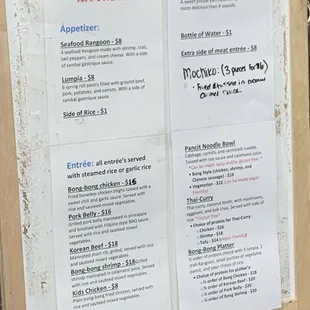 Appetizer:
Seafood Rangoon - $8
A seafood Rangoon made with shrimp, crab,
bell peppers, and cream cheese. With a side of
sambal gastrique sauce.
Lumpia - $8
6 spring roll pastry filled with ground beef,
pork, potatoes, and carrots. With a side of
sambal gastrique sauce
Side of Rice - $1
Entrée: all entrée's served
with steamed rice or garlic rice
Bong-bong chicken - $16
Fried boneless chicken thighs tossed with a
sweet chili and garlic sauce. Served with
rice and sautéed mixed vegetables.
Pork Belly - $16
Grilled pork belly marinated in pineapple
and brushed with Filipino style BBQ sauce
Served with rice and sautéed mixed
vegetables.
Korean Beef - $18
Marinated short rib, grilled, served with rice
and sautéed mixed vegetables.
Bong-bong shrimp - $18
shrimp marinated in calamansi juice. Served
with rice and sautéed mixed vegetables.
Kids Chicken - $8
Plain bong-bong fried chicken, served with
rice and sautéed mixed vegetables.
more delicious then it sounds.
Bottle of Water - $1
Extra side of meat entrée - $8
Mochiko: (3 pieces for $6)
Pancit Noodle Bowl
Cabbage, carrots, and vermicelli noodles.
Tossed with soy sauce and calamansi juice.
*Can be made spicy and/or gluten free
Bong Style (chicken, shrimp, and
Chinese sausage) - $18
Vegetarian - $12 (Can be made vegan
friendly)
Thai-Curry
Thai curry, coconut, with mushroom,
eggplant, and bok choy. Served with side of
rice.
Choice of protein for Thai-Curry:
Chicken - $16
Shrimp - $18
Tofu - $14 (Vegan friendly)
Bong-Bong Platter
½ order of protein choice with 3 lumpia, 3
crab Rangoons, small portion of vegetable
pancit, and your choice of rice
Choice of protein for platter's:
½ order of Bong Chicken - $18
½ order of Korean Beef - $20
½ order of Pork Belly - $20
½ order of Bong Shrimp - $20